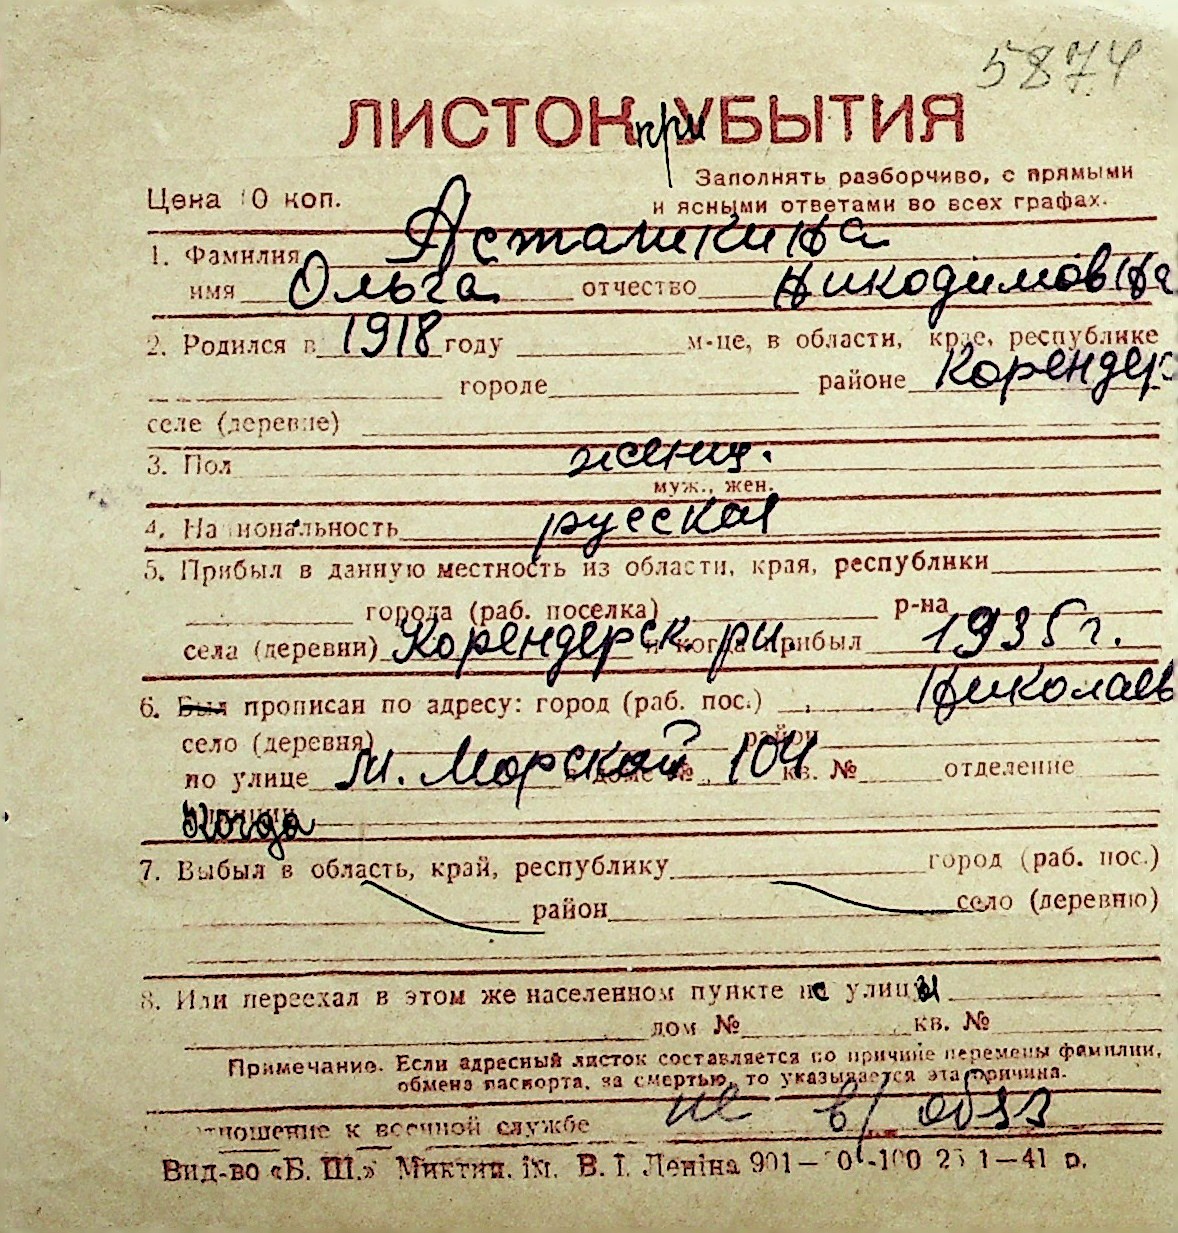 5874
ЛИСТОК при УБЫТИЯ
Цена 10 коп.
Заполнять разборчиво, с прямыми
и ясными ответами во всех графах.
1. Фамилия Асташкина
имя Ольга отчество Никодимовна
2. Родился в 1918 году м-це, в области, крае, республике
городе районе Корендер
селе (деревне)
3. Пол женщ.
муж., жен.
4. Национальность русская
5. Прибыл в данную местность из области, края, республики
города (раб. поселка) р-на
села (деревни) Корендерск. р-н. и когда прибыл 1935 г.
6. Был прописан по адресу: город (раб. пос.) Николаев
село (деревня) район
по улице М. Морской в доме № 104 кв. № отделение
милиции когда
7. Выбыл в область, край, республику город (раб. пос.)
район село (деревню)
8. Или переехал в этом же населенном пункте с улицы
дом № кв. №
Примечание. Если адресный листок составляется по причине перемены фамилии,
обмена паспорта, за смертью, то указывается эта причина.
отношение к военной службе не в/обяз
Вид-во «Б. Ш.» Миктип. ім. В. І. Леніна 901—